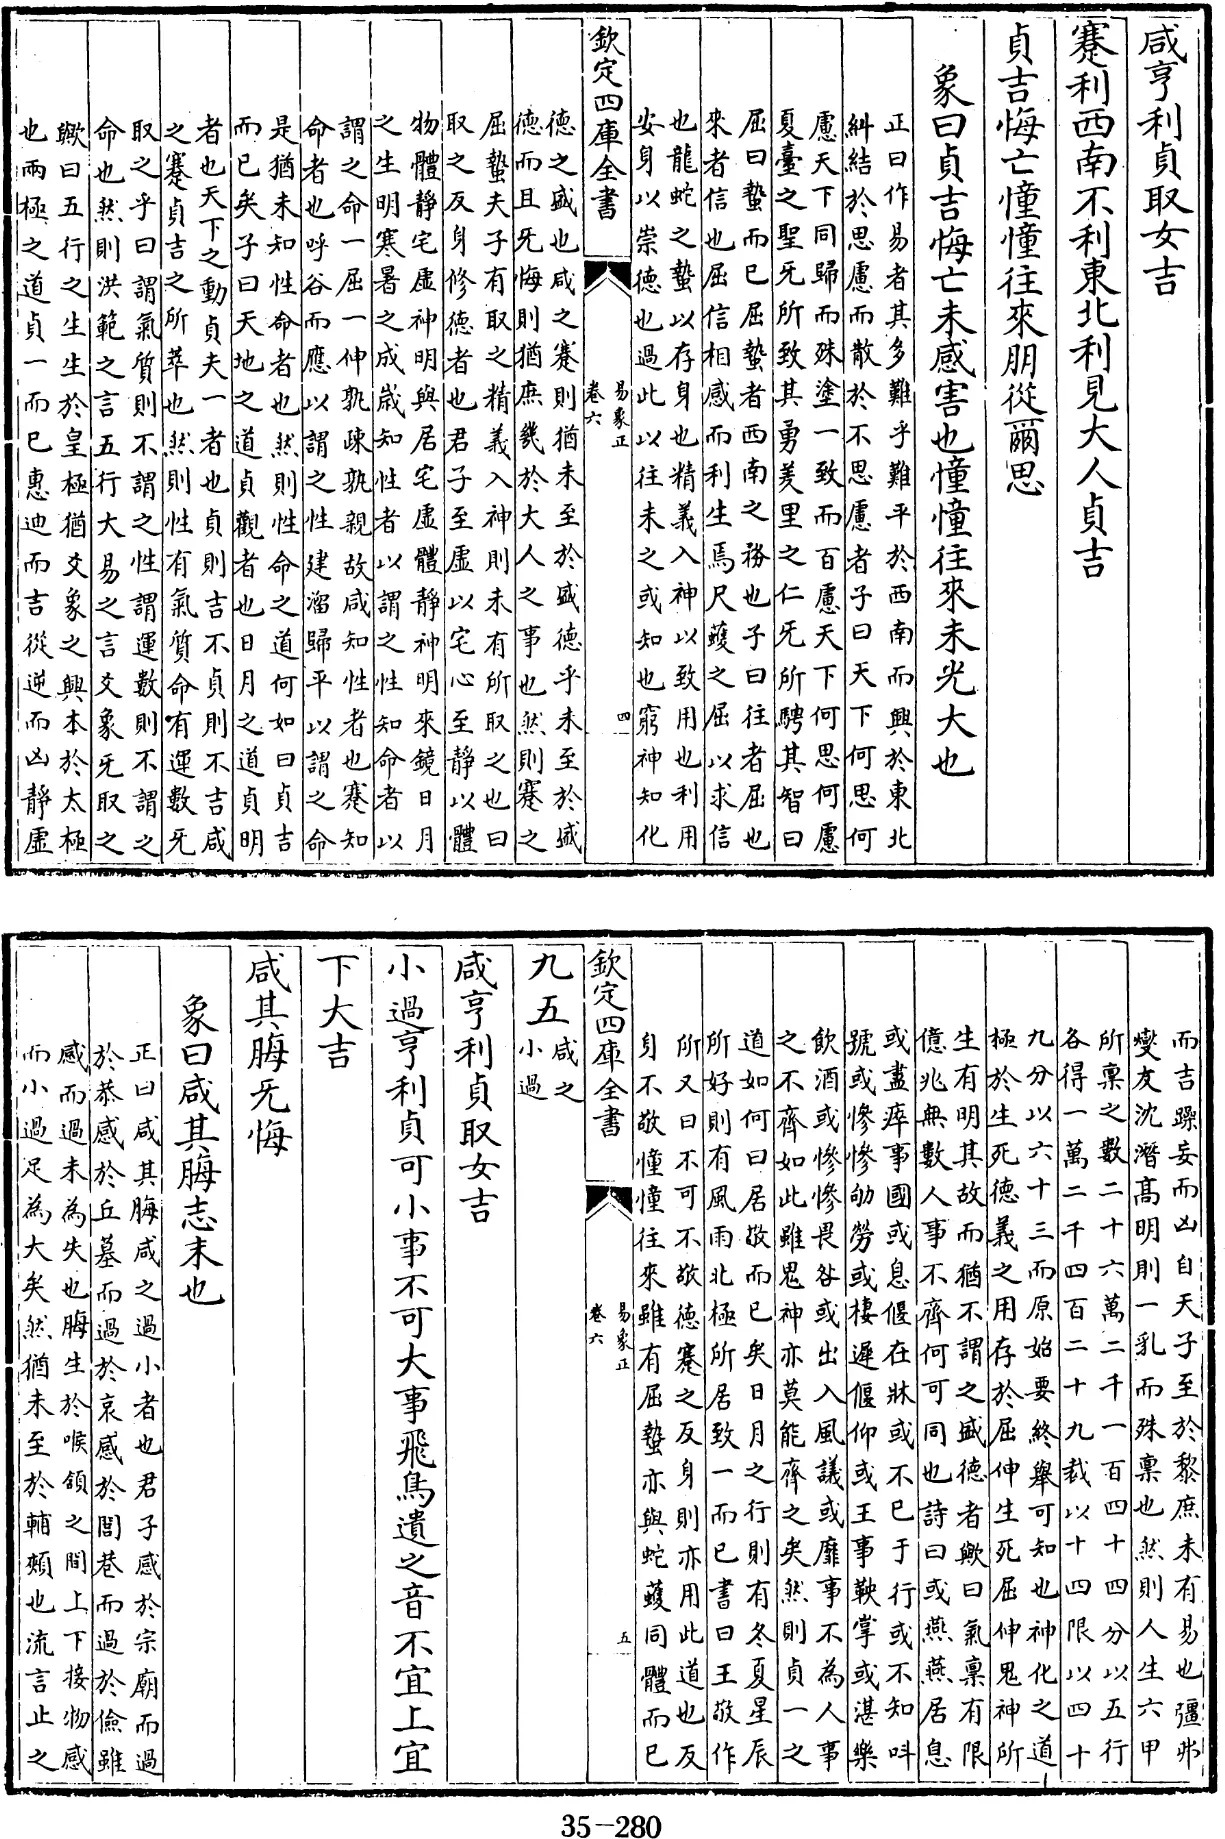 咸亨利貞取女吉
蹇利西南不利東北利見大人貞吉
貞吉悔亡憧憧往來朋從爾思
象曰貞吉悔亡未感害也憧憧往來未光大也
正曰作易者其多難乎難平於西南而興於東北
糾結於思慮而散於不思慮者子曰天下何思何
慮天下同歸而殊塗一致而百慮天下何思何慮
夏臺之聖旡所致其勇羑里之仁旡所騁其智曰
屈曰蟄而已屈蟄者西南之務也子曰往者屈也
來者信也屈信相感而利生焉尺蠖之屈以求信
也龍蛇之蟄以存身也精義入神以致用也利用
安身以崇德也過此以往未之或知也窮神知化
欽定四庫全書
易象正
卷六
四
德之盛也咸之蹇則猶未至於盛德乎未至於盛
德而且旡悔則猶庶幾於大人之事也然則蹇之
屈蟄夫子有取之精義入神則未有所取之也曰
取之反身修德者也君子至虛以宅心至靜以體
物體靜宅虛神明與居宅虛體靜神明來鏡日月
之生明寒暑之成歲知性者以謂之性知命者以
謂之命一屈一伸孰疎孰親故咸知性者也蹇知
命者也呼谷而應以謂之性建溜歸平以謂之命
是猶未知性命者也然則性命之道何如曰貞吉
而已矣子曰天地之道貞觀者也日月之道貞明
者也天下之動貞夫一者也貞則吉不貞則不吉咸
之蹇貞吉之所萃也然則性有氣質命有運數旡
取之乎曰謂氣質則不謂之性謂運數則不謂之
命也然則洪範之言五行大易之言爻象旡取之
歟曰五行之生生於皇極猶爻象之興本於太極
也兩極之道貞一而已惠迪而吉從逆而凶靜虛
而吉躁妄而凶自天子至於黎庶未有易也彊弗
燮友沈潛高明則一乳而殊稟也然則人生六甲
所稟之數二十六萬二千一百四十四分以五行
各得一萬二千四百二十九裁以十四限以四十
九分以六十三而原始要終舉可知也神化之道
極於生死德義之用存於屈伸生死屈伸鬼神所
生有明其故而猶不謂之盛德者歟曰氣稟有限
億兆無數人事不齊何可同也詩曰或燕燕居息
或盡瘁事國或息偃在牀或不已于行或不知叫
號或慘慘劬勞或棲遲偃仰或王事鞅掌或湛樂
飲酒或慘慘畏咎或出入風議或靡事不為人事
之不齊如此雖鬼神亦莫能齊之矣然則貞一之
道如何曰居敬而已矣日月之行則有冬夏星辰
所好則有風雨北極所居致一而已書曰王敬作
所又曰不可不敬德蹇之反身則亦用此道也反
身不敬憧憧往來雖有屈蟄亦與蛇蠖同體而已
欽定四庫全書
易象正
卷六
五
九五咸之小過
咸亨利貞取女吉
小過亨利貞可小事不可大事飛鳥遺之音不宜上宜
下大吉
咸其脢旡悔
象曰咸其脢志末也
正曰咸其脢咸之過小者也君子感於宗廟而過
於恭感於丘墓而過於哀感於閭巷而過於儉雖
感而過未為失也脢生於喉頷之間上下接物感
而小過足為大矣然猶未至於輔頰也流言止之
35-280